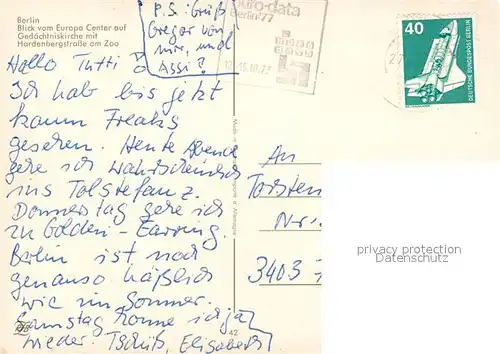 Berlin
Blick vom Europa Center auf
Gedächtniskirche mit
Hardenbergstraße am Zoo
P.S: Grüß
Gregor von
mir, und
Assi?
euro-data
Berlin '77
12.-15.10.77
40
DEUTSCHE BUNDESPOST BERLIN
Hallo Tutti
Ich hab bis jetzt
kaum Freaks
gesehen. Heute Abend
gehe ich wahrscheinlich
ins Tolstefanz.
Donnerstag gehe ich
zu Golden-Earring.
Berlin ist noch
genauso häßlich
wie im Sommer.
Samstag komme ich ja
wieder. Tschüß, Elisabeth
An
Torsten
Nr.
3403
42
privacy protection
www.delcampe.net